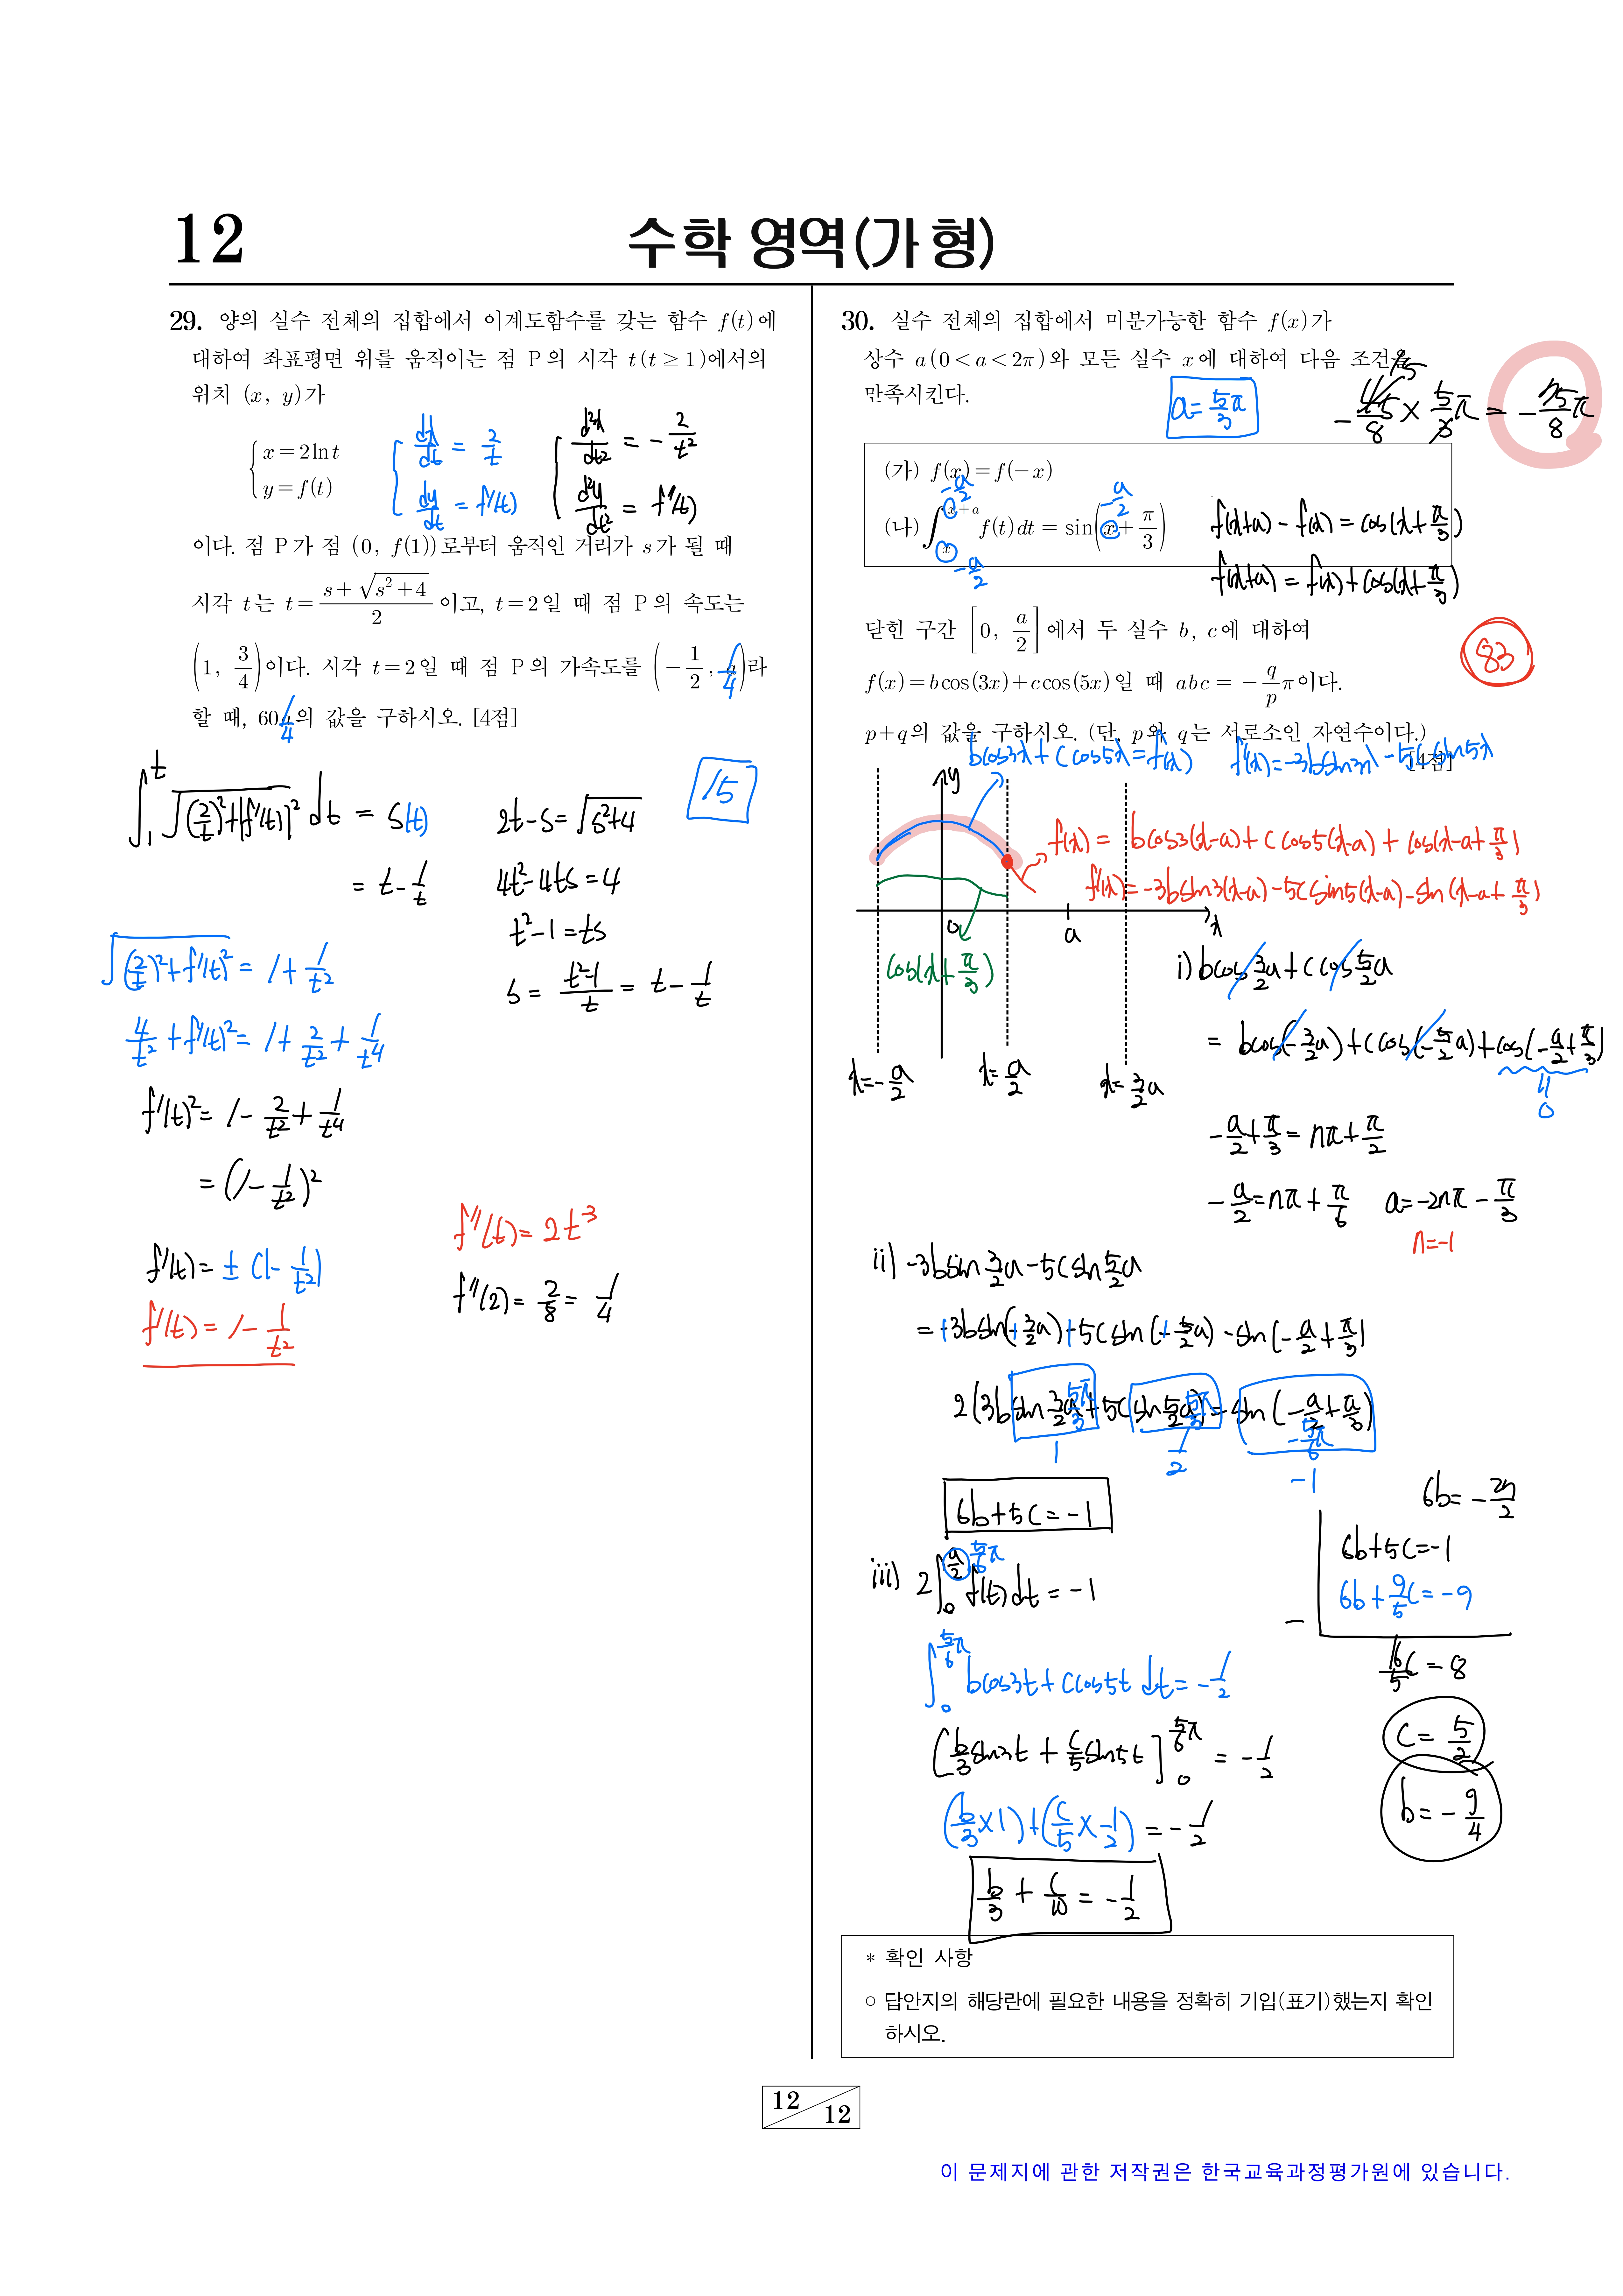 12
수학 영역(가형)
29. 양의 실수 전체의 집합에서 이계도함수를 갖는 함수 f(t)에
대하여 좌표평면 위를 움직이는 점 P의 시각 t(t≥1)에서의
위치 (x, y)가
x=2lnt
y=f(t)
dx/dt = 2/t
dy/dt = f'(t)
d²x/dt² = -2/t²
d²y/dt² = f''(t)
이다. 점 P가 점 (0, f(1))로부터 움직인 거리가 s가 될 때
시각 t는 t=(s+√(s²+4))/2 이고, t=2일 때 점 P의 속도는
(1, 3/4)이다. 시각 t=2일 때 점 P의 가속도를 (-1/2, a)라
1/4
할 때, 60a의 값을 구하시오. [4점]
1/4
15
∫₁ᵗ √((2/t)²+{f'(t)}²) dt = S(t)
= t-1/t
2t-s=√(s²+4)
4t²-4ts=4
t²-1=ts
s=(t²-1)/t=t-1/t
√((2/t)²+f'(t)²)=1+1/t²
4/t²+f'(t)²=1+2/t²+1/t⁴
f'(t)²=1-2/t²+1/t⁴
=(1-1/t²)²
f'(t)=±(1-1/t²)
f'(t)=1-1/t²
f''(t)=2t⁻³
f''(2)=2/8=1/4
30. 실수 전체의 집합에서 미분가능한 함수 f(x)가
상수 a(0<a<2π)와 모든 실수 x에 대하여 다음 조건을
만족시킨다.
a=5/3π
-45/8×5/3π=-75/8π
15
(가) f(x)=f(-x)
(나) ∫ₓ^(x+a) f(t)dt=sin(x+π/3)
-a/2
-a/2
-a/2
f(x+a)-f(x)=cos(x+π/3)
f(x+a)=f(x)+cos(x+π/3)
닫힌 구간 [0, a/2]에서 두 실수 b, c에 대하여
f(x)=bcos(3x)+ccos(5x)일 때 abc=-q/p π이다.
p+q의 값을 구하시오. (단, p와 q는 서로소인 자연수이다.)
[4점]
83
bcos3x+ccos5x=f(x)
f'(x)=-3bsin3x-5csin5x
y
f(x)=bcos3(x-a)+ccos5(x-a)+cos(x-a+π/3)
f'(x)=-3bsin3(x-a)-5csin5(x-a)-sin(x-a+π/3)
0
a
x
cos(x+π/3)
x=-a/2
x=a/2
x=3/2a
i) bcos3/2a+ccos5/2a
=bcos(-3/2a)+ccos(-5/2a)+cos(-a/2+π/3)
0
-a/2+π/3=nπ+π/2
-a/2=nπ+π/6 a=-2nπ-π/3
n=-1
ii) -3bsin3/2a-5csin5/2a
=+3bsin(+3/2a)+5csin(+5/2a)-sin(-a/2+π/3)
2(3bsin3/2a+5csin5/2a)=sin(-a/2+π/3)
1
1/2
-1
6b+5c=-1
iii) 2∫₀^(a/2) f(t)dt=-1
5/6π
∫₀^(5/6π) bcos3t+ccos5t dt=-1/2
[b/3sin3t+c/5sin5t]₀^(5/6π)=-1/2
(b/3×1)+(c/5×1/2)=-1/2
b/3+c/10=-1/2
6b=-27/2
6b+5c=-1
6b+9/5c=-9
-
16/5c=8
c=5/2
b=-9/4
* 확인 사항
○ 답안지의 해당란에 필요한 내용을 정확히 기입(표기)했는지 확인
하시오.
12
12
이 문제지에 관한 저작권은 한국교육과정평가원에 있습니다.